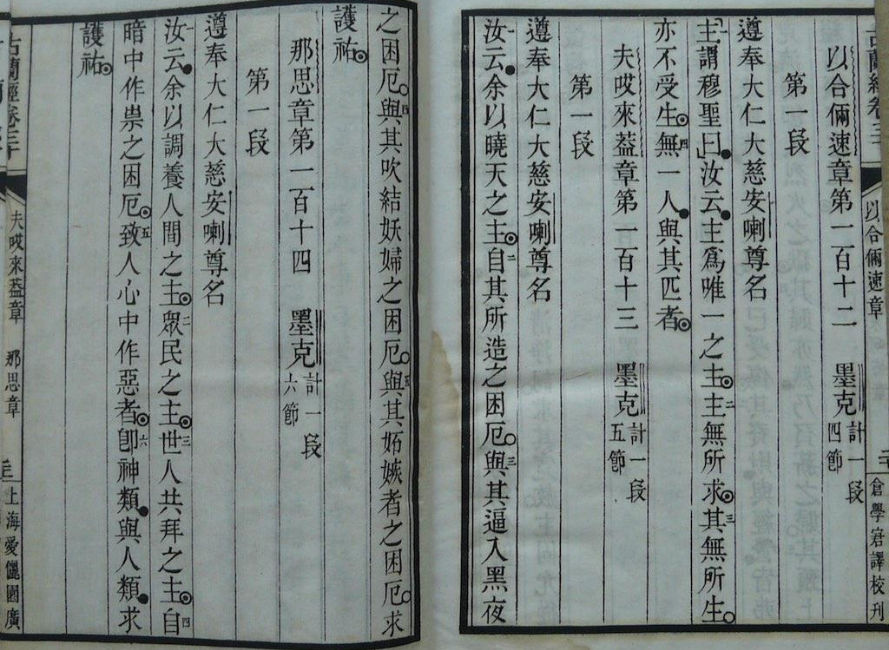 古蘭經卷三十 以合倆速章 倉學宭譯校刊
以合倆速章第一百十二 墨克 計一段 四節
第一段
遵奉大仁大慈安喇尊名
一主謂穆聖曰●汝云●主爲唯一之主◎二主無所求◎三其無所生○
亦不受生◎四無一人●與其匹者◎
夫哎來葢章第一百十三 墨克 計一段 五節
第一段
遵奉大仁大慈安喇尊名
一汝云●余以曉天之主◎二自其所造之困厄○三與其逼入黑夜
之困厄○四與其吹結妖婦之困厄○五與其妬嫉者之困厄○求
護祐◎
那思章第一百十四 墨克 計一段 六節
第一段
遵奉大仁大慈安喇尊名
一汝云●余以調養人間之主◎二眾民之主◎三世人共拜之主◎四自
暗中作祟之困厄◎五致人心中作惡者◎六卽神類●與人類●求
護祐◎
古蘭經卷三十 夫哎來葢章 那思章 上海愛儷園廣